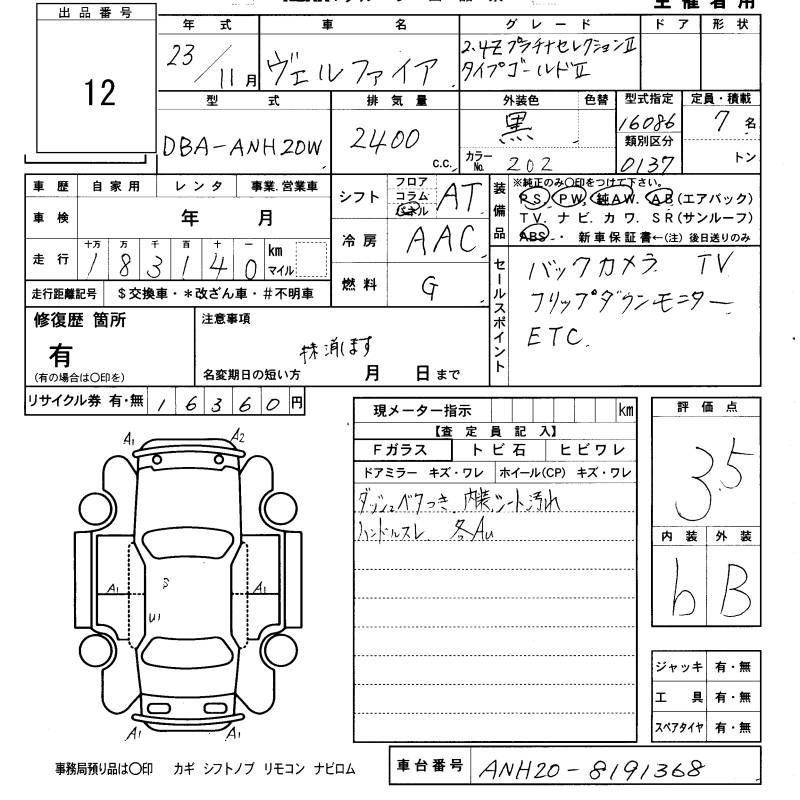 出品番号
12
年式 車名 グレード ドア 形状
23/11月 ヴェルファイア 2.4Z プラチナセレクションⅡ
タイプゴールドⅡ
型式 排気量 外装色 色替 型式指定 定員・積載
DBA-ANH20W 2400 C.C. 黒 16086 7名
類別区分
カラーNo. 202 0137 トン
車歴 自家用 レンタ 事業.営業車
シフト フロア コラム パネル AT
装備品 ※純正のみ〇印をつけて下さい。
PS. PW. 純AW. AB(エアバッグ)
TV. ナビ. カワ. SR(サンルーフ)
ABS. ・ 新車保証書←(注) 後日送りのみ
車検 年 月
冷房 AAC
走行 十万 万 千 百 十 一
183140 km マイル
燃料 G
走行距離記号 $交換車・*改ざん車・#不明車
セールスポイント
バックカメラ TV
フリップダウンモニター
ETC
修復歴 箇所
有
(有の場合は〇印を)
注意事項
抹消します
名変期日の短い方 月 日まで
リサイクル券 有・無 16360円
現メーター指示 km
【査定員記入】
Fガラス トビ石 ヒビワレ
ドアミラー キズ・ワレ ホイール(CP) キズ・ワレ
ダッシュベタつき 内装シート汚れ
ハンドルスレ 各AU
評価点
3.5
内装 外装
b B
A1 A2
A1 S A1
U1
A1 A1
ジャッキ 有・無
工具 有・無
スペアタイヤ 有・無
事務局預り品は〇印 カギ シフトノブ リモコン ナビロム
車台番号 ANH20-8191368